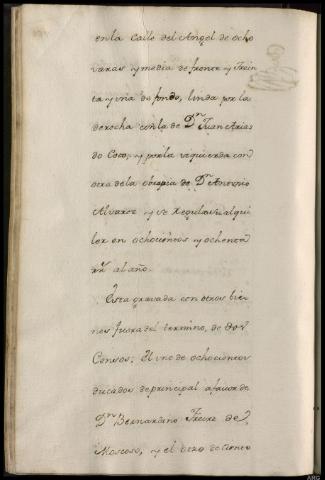 en la Calle del Angel de ocho
varas y media de frente y Trein
ta y una de fondo, linda por la
derecha con la de Dn. Juan Arias
do Coto, y por la izquierda con
otra de la obrapia de Dn. Antonio
Alvarez y se regula su alqui
ler en ochocientos y ochenta
rs. al año.
Esta gravada con otros bie-
nes fuera del termino, de dos
Censos; El uno de ochocientos
ducados de principal a favor de
Dn. Bernardino Freire de
Moscoso, y el otro de ciento
ARG